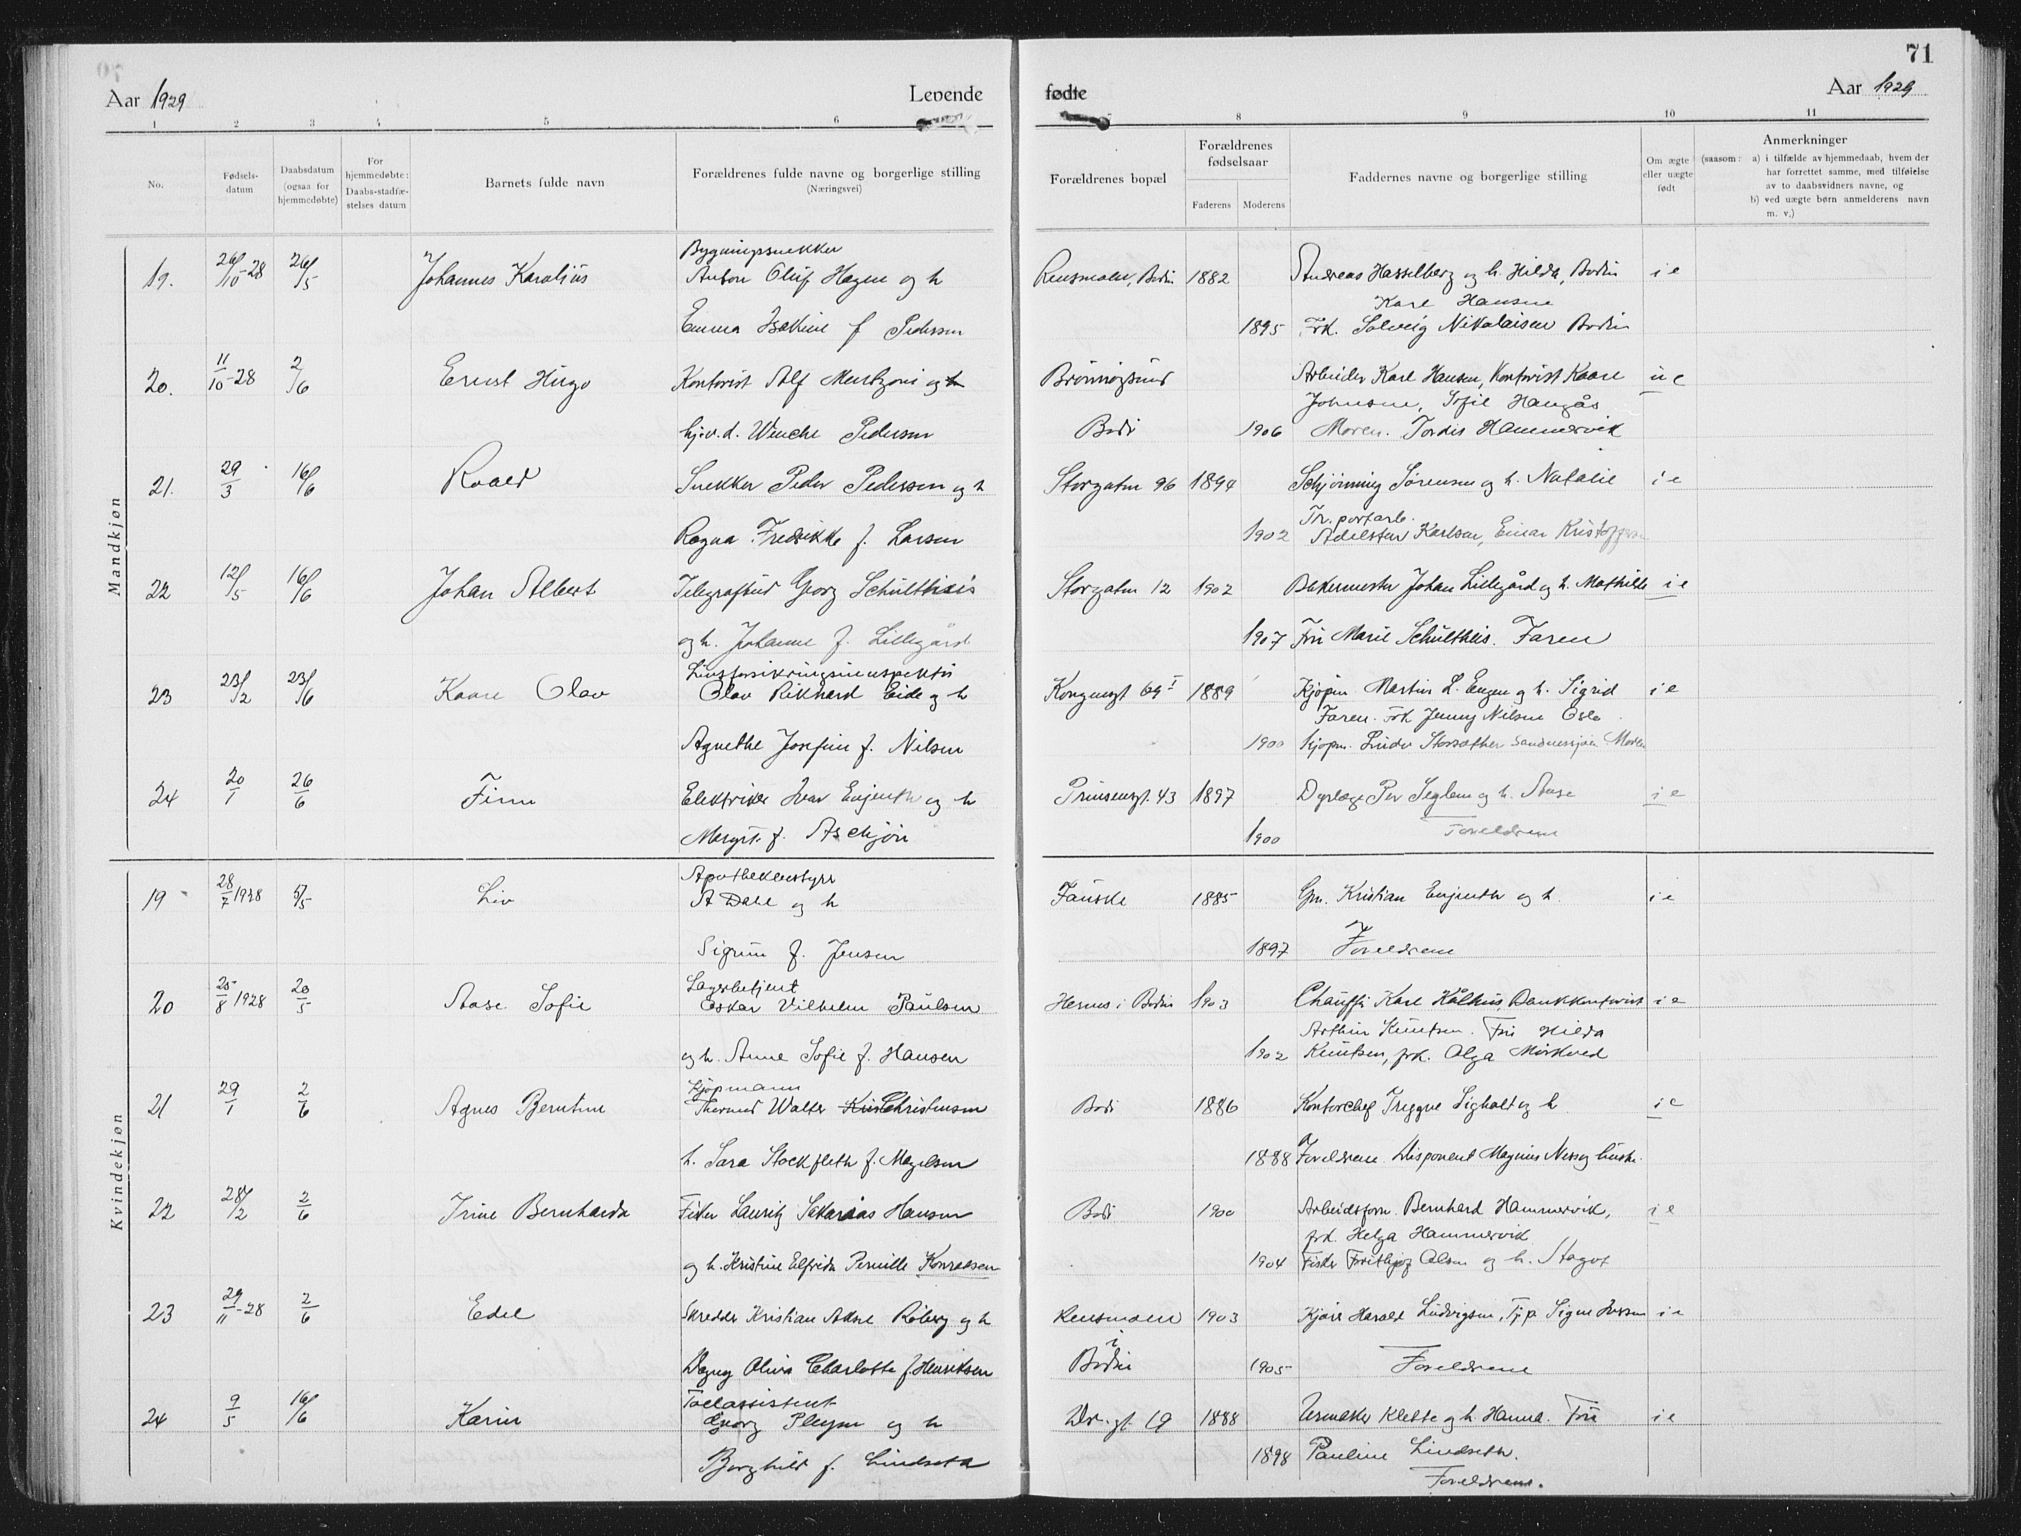 71
Aar 1929
Levende
fødte
Aar 1929
1 2 3 4 5 6 7 8 9 10 11
No.
Fødsels-
datum
Daabsdatum
(ogsaa for
hjemmedøbte)
For
hjemmedøbte:
Daabs-stadfæ-
stelses datum
Barnets fulde navn
Forældrenes fulde navne og borgerlige stilling
(Næringsvei)
Forældrenes bopæl
Forældrenes
fødselsaar
Faderens
Moderens
Faddernes navne og borgerlige stilling
Om ægte
eller uægte
født
Anmerkninger
(saasom: a) i tilfælde av hjemmedaab, hvem der
har forrettet samme, med tilføielse
av to daabsvidners navne, og
b) ved uægte børn anmelderens navn
m. v.)
Mandkjøn
Bygningssnekker
19. 26/10-28 26/5 Johannes Karolius Anton Oluf Hagen og h Rensmoen, Bodin 1882 Andreas Hasselberg og h. Hilda, Bodin i e
Karl Hansen
Emma Isakine f Pedersen 1895 Frk. Solveig Nikolaisen Bodin
20. 11/10-28 2/6 Ernst Hugo Kontorist Alf Mentzoni og h Brønnøysund Arbeider Karl Hansen, Kontorist Kaare u e
Johnsen, Sofie Haugås
hjv.d. Wenche Pedersen Bodø 1906 Moren. Tordis Hammervik
21. 29/3 16/6 Roald Snekker Peder Pedersen og h Storgaten 96 1894 Schjønning Sørensen og h. Natalie i e
Tr.portarb.
Ragna Fredrikke f. Larsen 1902 Adelsten Karlsen, Einar Kristoffersen
22 12/5 16/6 Johan Albert Telegrafbud Georg Schultheis Storgaten 12 1902 Bakermester Johan Lillegård og h. Mathilde i e
og h. Johanne f. Lillegård 1907 Fru Marie Schultheis. Faren
Livsforsikringsinspektør
23 23/2 23/6 Kaare Olav Olav Rikhard Eide og h Kongensgt 69 I 1889 Kjøpm Martin L. Engen og h. Sigrid i e
Faren. Frk Jenny Nilsen Oslo
Agnethe Josefine f. Nilsen 1900 Kjøpm. Storsæther Sandnessjøen Moren
24 20/1 26/6 Finn Elektriker Ivar Evjenth og h Prinsensgt. 43 1897 Dyrlæge Per Seglem og h. Aase i e
Margit f. Aschjem 1900 Foreldrene
Kvindekjøn
Apothekerbestyrer
19 28/7 1928 5/5 Liv A Dahl og h Fauske 1885 Gm. Kristian Evjenth og h. i e
Sigrun f. Jensen 1897 Foreldrene
Lagerbetjent
20 25/8 1928 20/5 Aase Sofie Oskar Vilhelm Paulsen Hernes i Bodin 1903 Chauffør Karl Kålhus, Bankkontorist i e
Arthur Knutsen. Fru Hilda
og h. Anne Sofie f. Hansen 1902 Knutsen, frk. Olga Mørkved
Kjøpmann
21 29/1 2/6 Agnes Berntine Thormod Walter Christensen Bodø 1886 Kontorchef Tryggve Sigholt og h i e
h. Sara Stockfleth f. Magelsen 1888 Foreldrene. Disponent Magnus Nersey
22 28/2 2/6 Irine Bernharda Fisker Lauritz Sakarias Hansen Bodø 1900 Arbeidsform. Bernhard Hammervik, i e
frk. Helga Hammervik
og h. Kristine Elfrida Pernille Konradsen 1904 Fisker Fritjof Olsen og h. Dagot
23 29/11-28 2/6 Edel Skredder Kristian Adse Roberg og h Rensmoen 1903 Kjøre Harald Ludvigsen, Tjp Signe Iversen i e
i
Dagny Oliva Charlotte f. Henriksen Bodin 1905 Foreldrene
Toldassistent
24 9/5 16/6 Karin Georg Pleym og h Dr.gt 19 1888 Urmaker Klette og h. Hanna. Fru i e
Borghild f. Lindseth 1898 Pauline Lindseth.
Foreldrene.